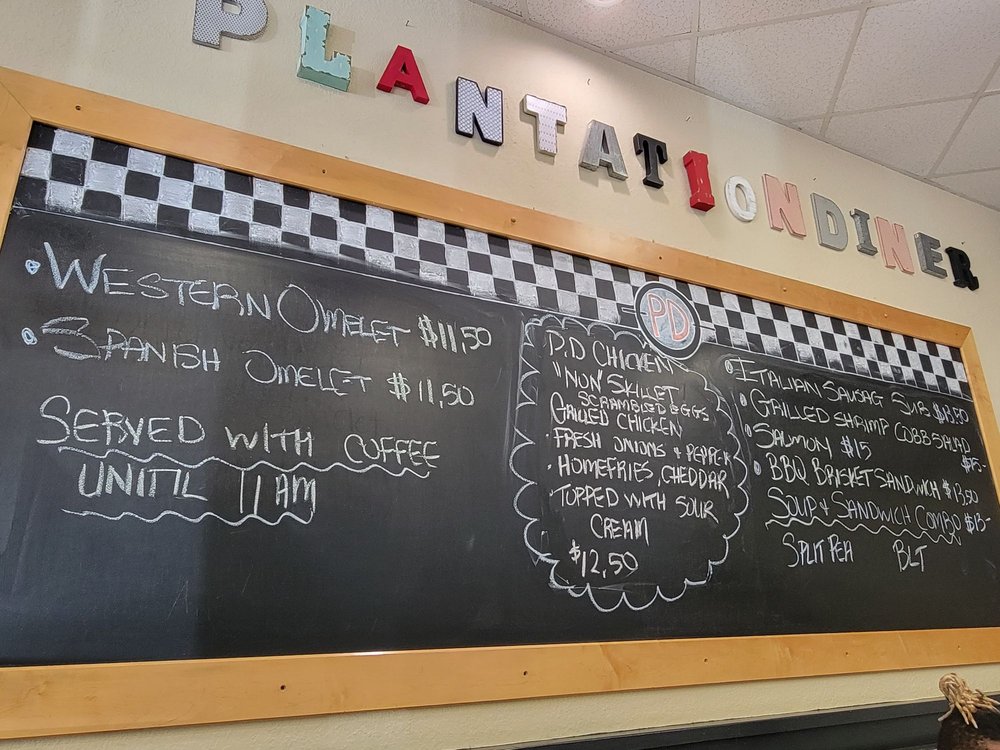 PLANTATION DINER
PD
WESTERN OMELET $11,50
SPANISH OMELET $11,50
SERVED WITH COFFEE
UNITIL 11 AM
P.D CHICKEN
"NON" SKILLET
SCRAMBLED EGGS
GRILLED CHICKEN
FRESH ONIONS & PEPPER
HOMEFRIES, CHEDDAR
TOPPED WITH SOUR
CREAM
$12,50
ITALIAN SAUSAG SUB
GRILLED SHRIMP COBB SALAD
$15-
SALMON $15
BBQ BRISKET SANDWICH $13,50
SOUP & SANDWICH COMBO $13-
SPLIT PEA BLT